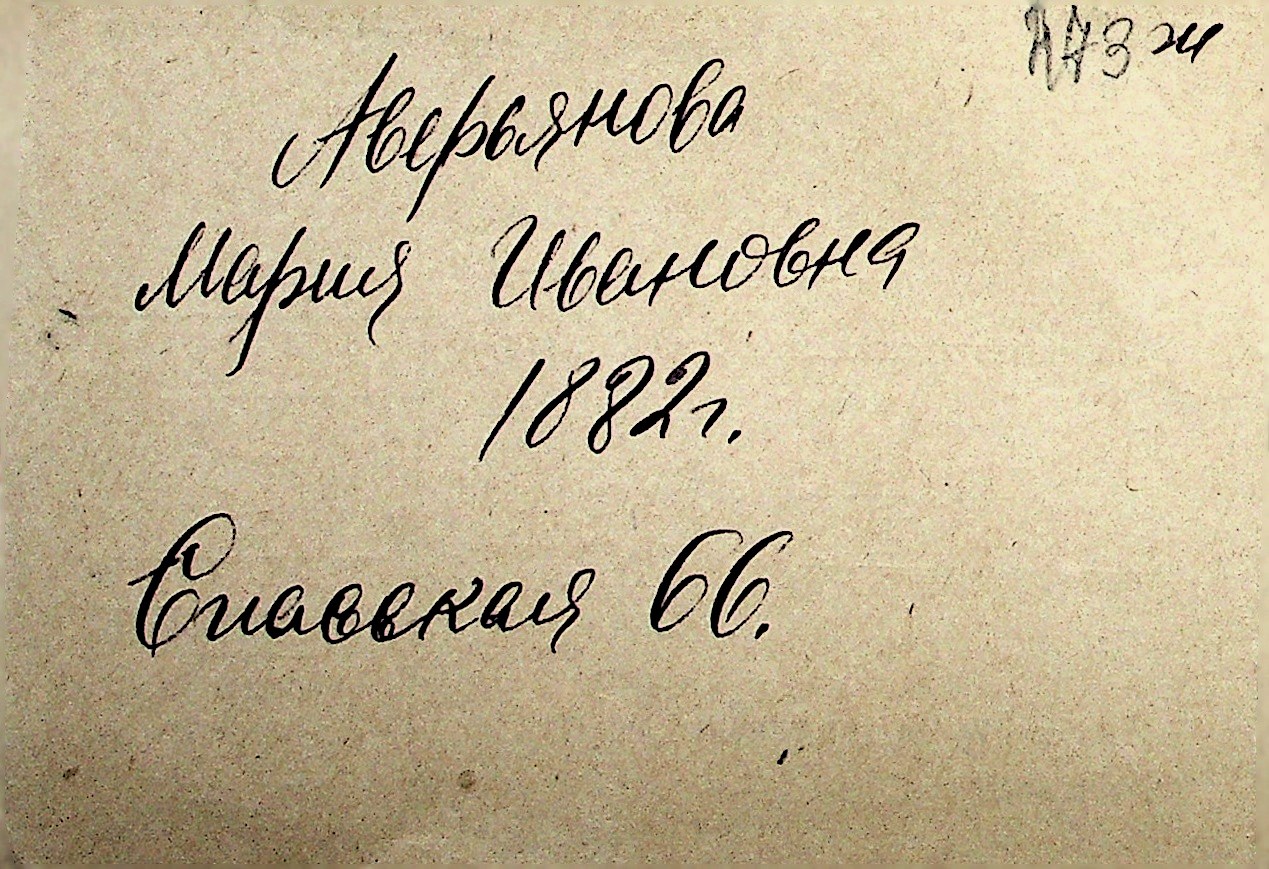 Аверьянова
Мария Ивановна
1882г.
Спасская 66.